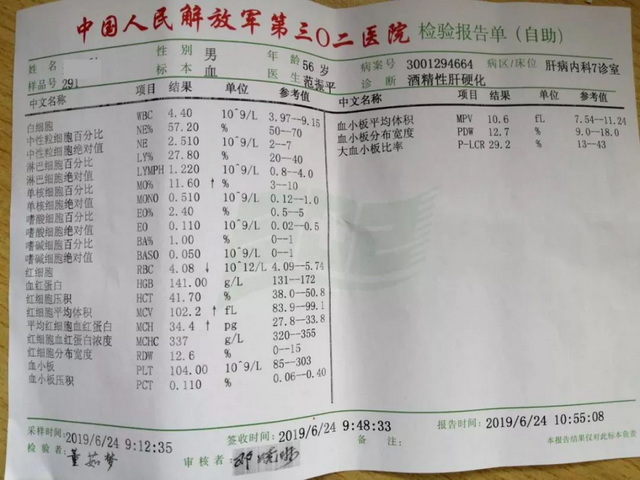 中国人民解放军第三〇二医院 检验报告单(自助)
姓名 性别 男 年龄 56 岁 病案号 3001294664 病区/床位 肝病内科7诊室
样品号 291 标本 血 医生 范振平 诊断 酒精性肝硬化
中文名称 项目 结果 单位 参考值
白细胞 WBC 4.40 10^9/L 3.97-9.15
中性粒细胞百分比 NE% 57.20 % 50-70
中性粒细胞绝对值 NE 2.510 10^9/L 2-7
淋巴细胞百分比 LY% 27.80 % 20-40
淋巴细胞绝对值 LYMPH 1.220 10^9/L 0.8-4.0
单核细胞百分比 MO% 11.60 ↑ % 3-10
单核细胞绝对值 MONO 0.510 10^9/L 0.12-1.0
嗜酸细胞百分比 EO% 2.40 % 0.5-5
嗜酸细胞绝对值 EO 0.110 10^9/L 0.02-0.5
嗜碱细胞百分比 BA% 1.00 % 0-1
嗜碱细胞绝对值 BASO 0.050 10^9/L 0-1
红细胞 RBC 4.08 ↓ 10^12/L 4.09-5.74
血红蛋白 HGB 141.00 g/L 131-172
红细胞压积 HCT 41.70 % 38.0-50.8
红细胞平均体积 MCV 102.2 ↑ fL 83.9-99.1
平均红细胞血红蛋白 MCH 34.4 ↑ pg 27.8-33.8
红细胞血红蛋白浓度 MCHC 337 g/L 320-355
红细胞分布宽度 RDW 12.6 % 0-15
血小板 PLT 104.00 10^9/L 85-303
血小板压积 PCT 0.110 % 0.06-0.40
中文名称 项目 结果 单位 参考值
血小板平均体积 MPV 10.6 fL 7.54-11.24
血小板分布宽度 PDW 12.7 % 9.0-18.0
大血小板比率 P-LCR 29.2 % 13-43
采样时间: 2019/6/24 9:12:35 签收时间: 2019/6/24 9:48:33 报告时间: 2019/6/24 10:55:08
检验者: 董茹梦 审核者: 备注: 本报告结果仅对此标本负责